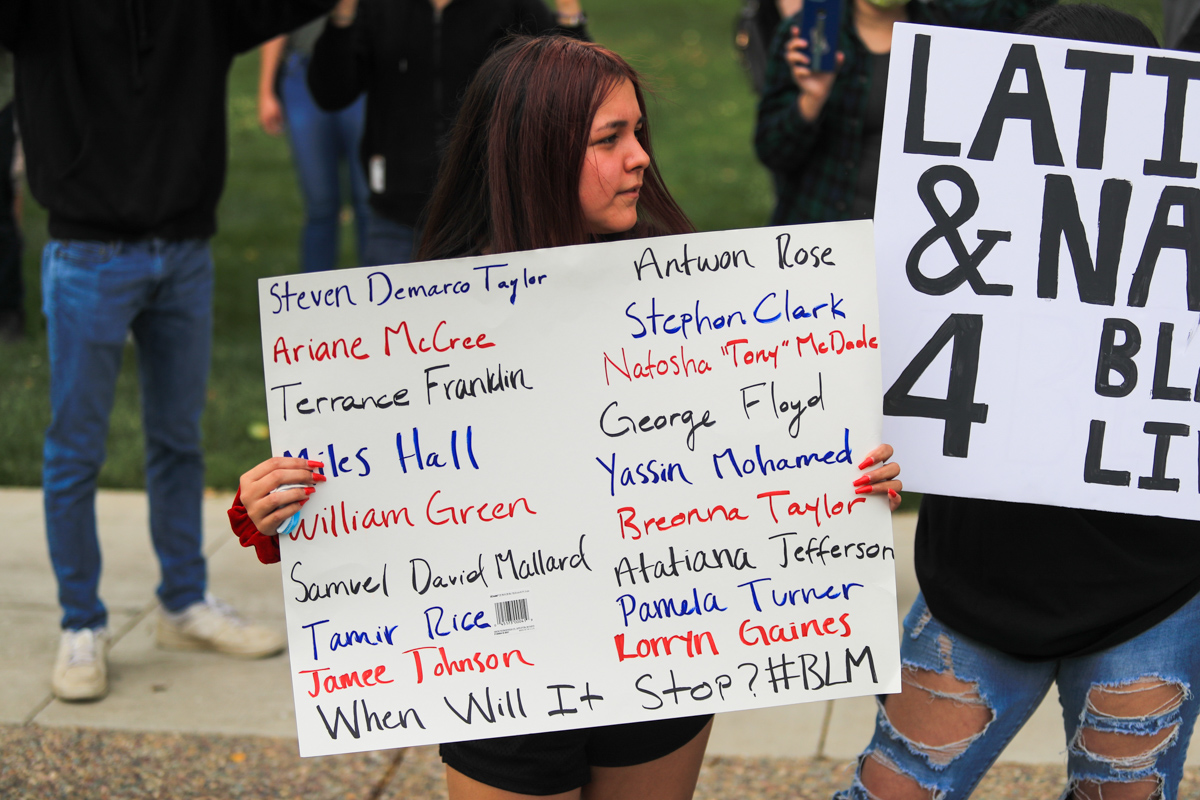 Steven Demarco Taylor
Ariane McCree
Terrance Franklin
Miles Hall
William Green
Samuel David Mallard
Tamir Rice
Jamee Johnson
Antwon Rose
Stephon Clark
Natosha "Tony" McDade
George Floyd
Yassin Mohamed
Breonna Taylor
Atatiana Jefferson
Pamela Turner
Lorryn Gaines
When Will It Stop? #BLM
LATI
& NA
4 BL
LI